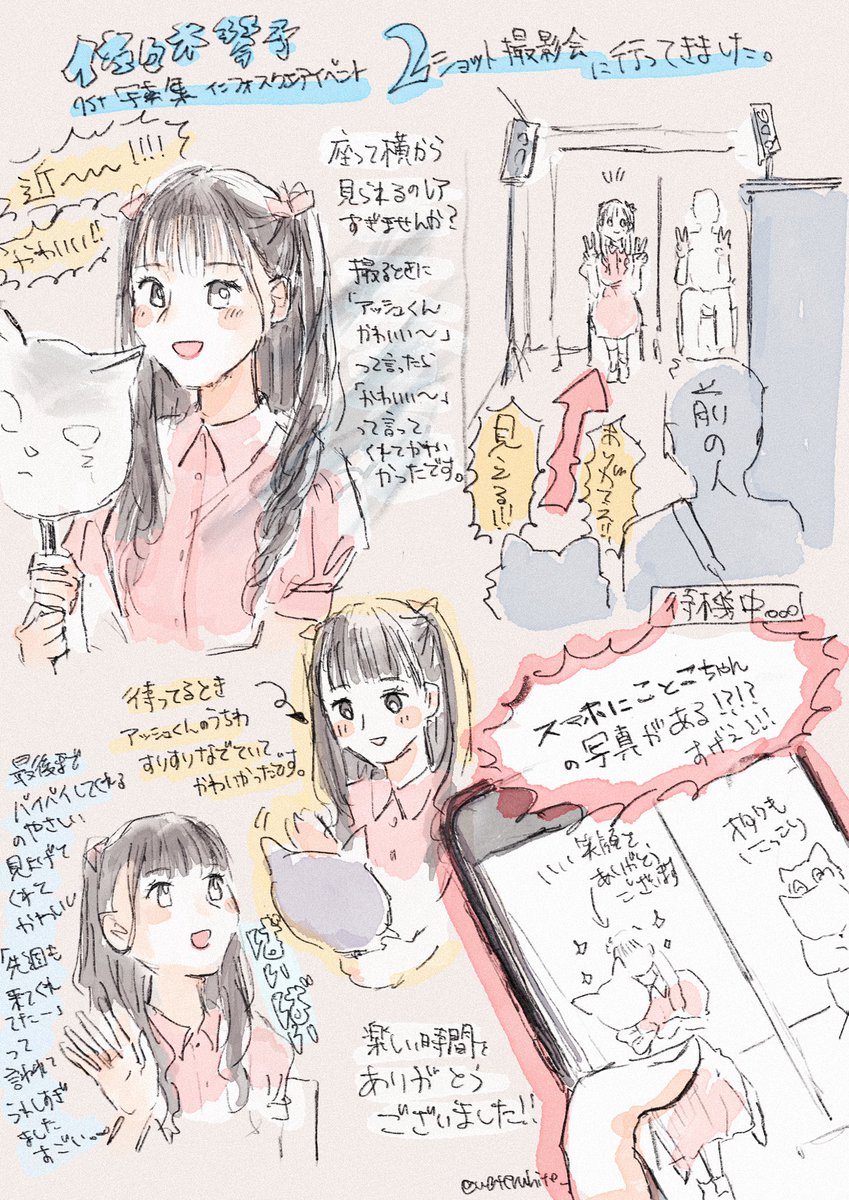 佐々木琴子
1st写真集 インフォスクエアイベント
2ショット撮影会に行ってきました。
近〜〜!!!!
かわいい!!
座って横から
見られるのレア
すぎませんか?
撮るときに
「アッシュくん
かわいい〜」
って言ったら
「かわいい〜」
って言って
くれてかわい
かったです。
見えてる!!!
前の人
待機中
待ってるとき
アッシュくんのうちわ
すりすりなでていて
かわいかったです。
スマホにことこちゃん
の写真がある!?!?
すげえ!!
いい笑顔で
ありがとう
ございます
オタクも
にっこり
最後まで
バイバイしてくれる
のやさしい
見上げて
くれて
かわいい
「先週も
来てくれ
てたー」
って
言われて
うれしすぎ
ました
すごい
ばいばい
楽しい時間を
ありがとう
ございました!!